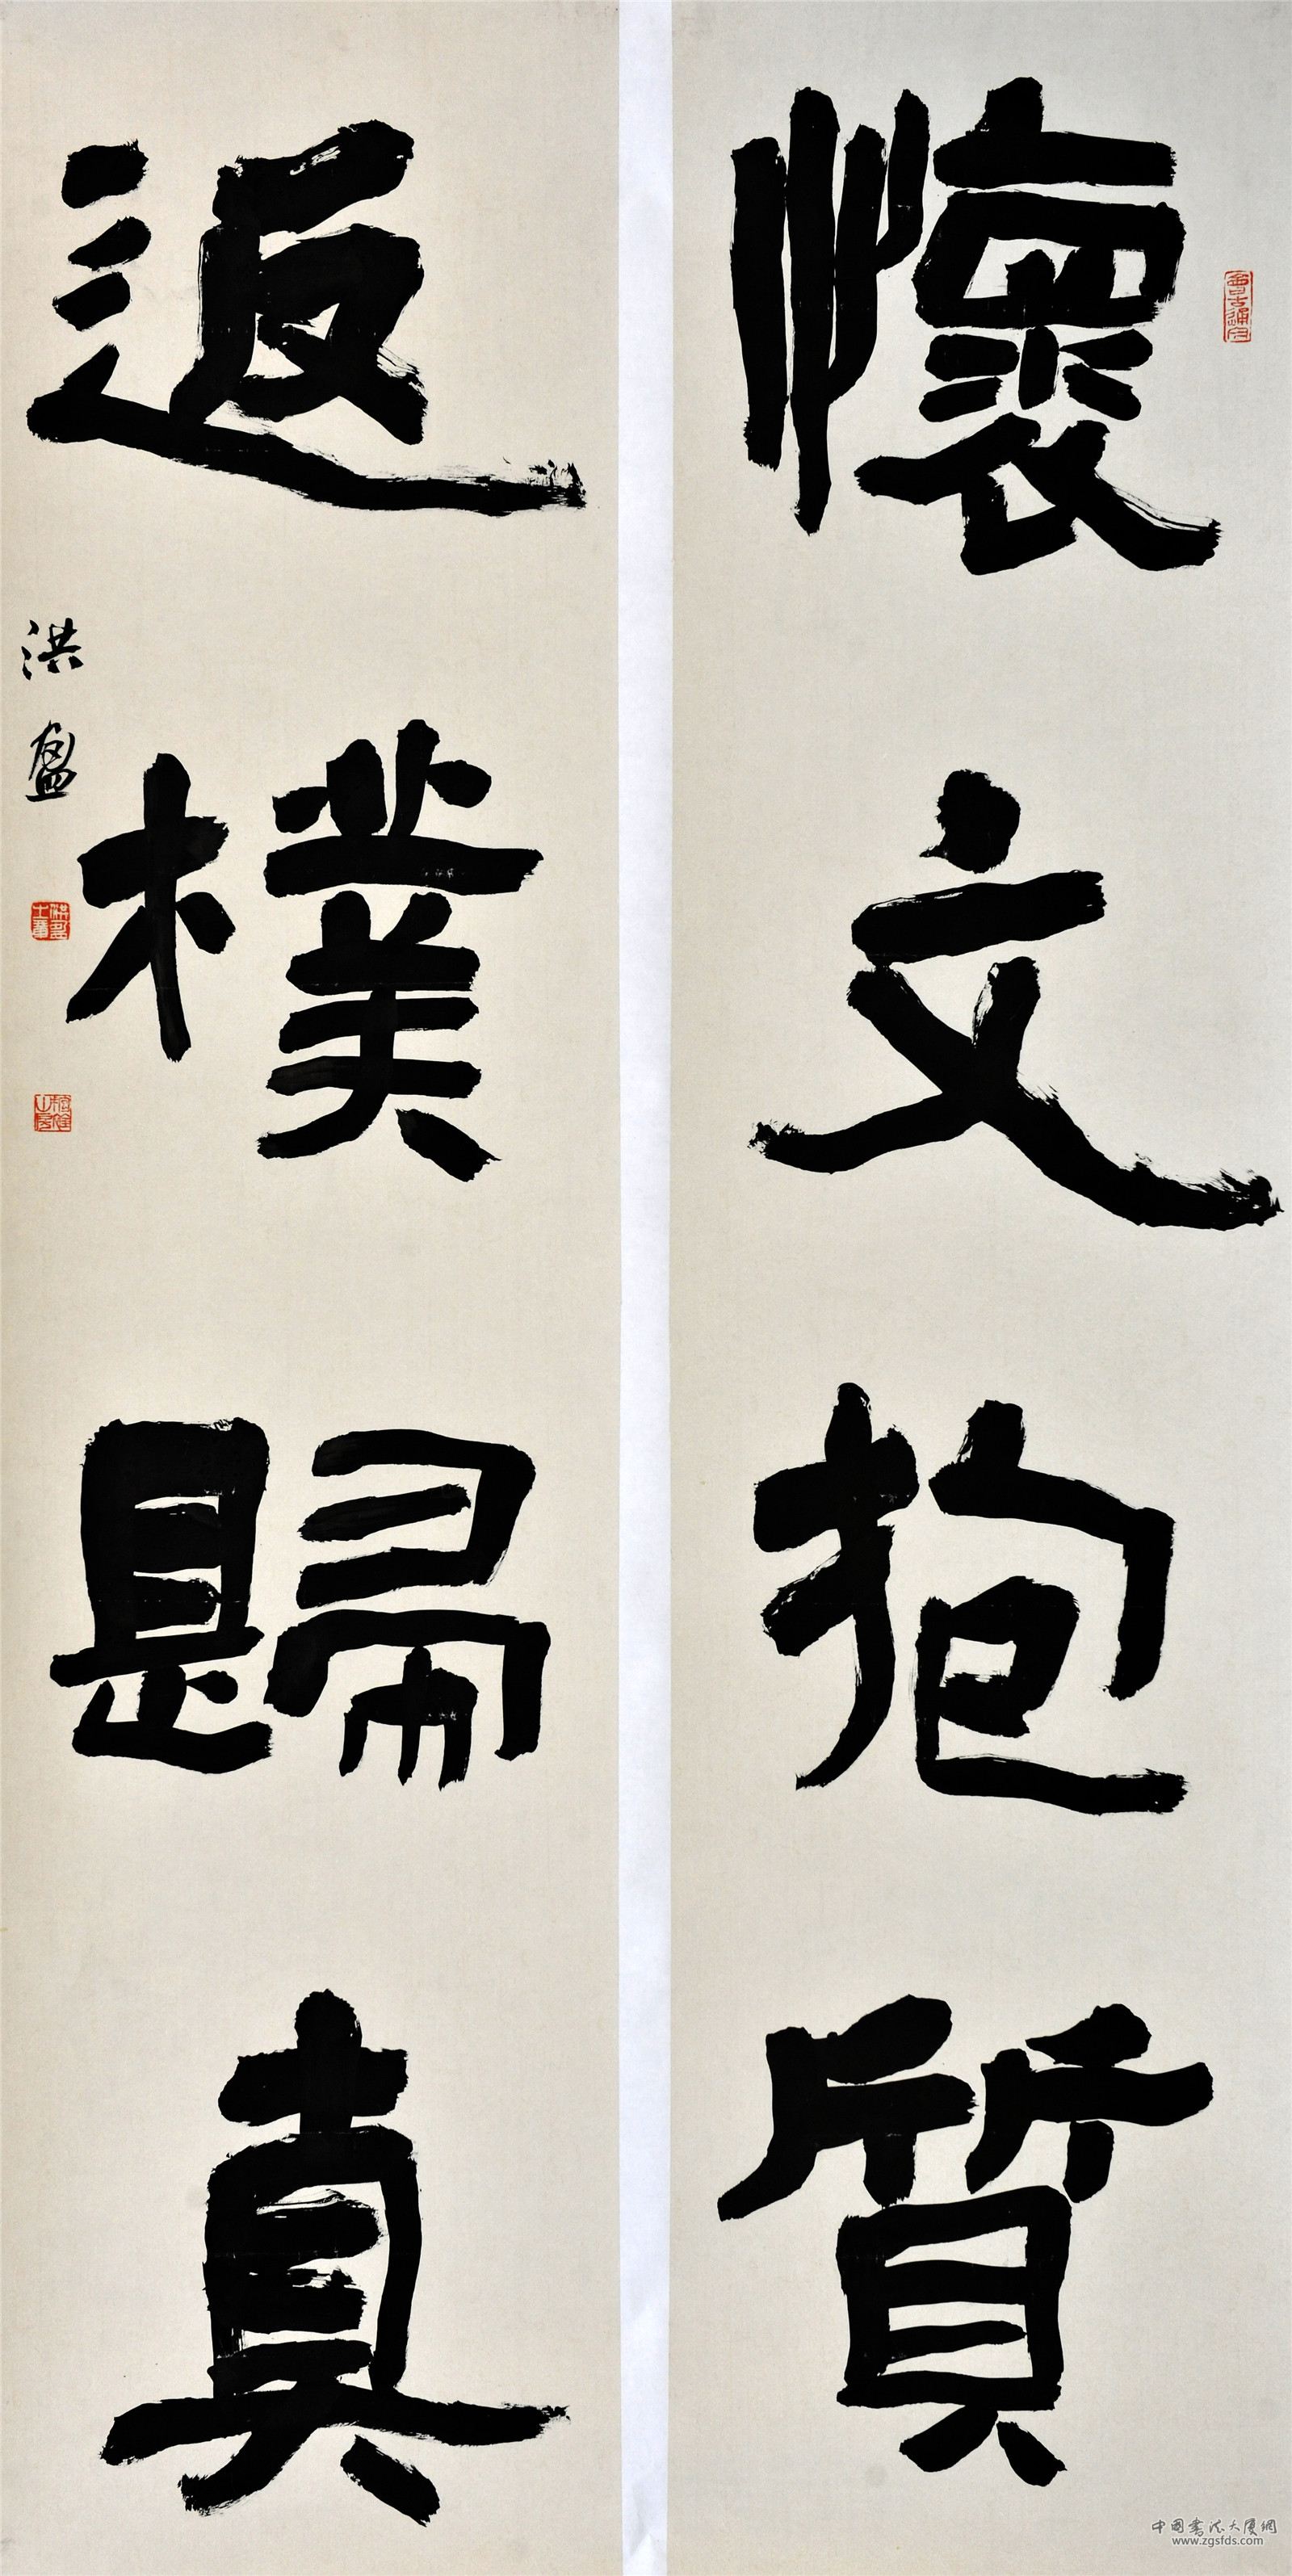 懷文抱質
返樸歸真
洪盈
中國書法大廈網
www.zgsfds.com